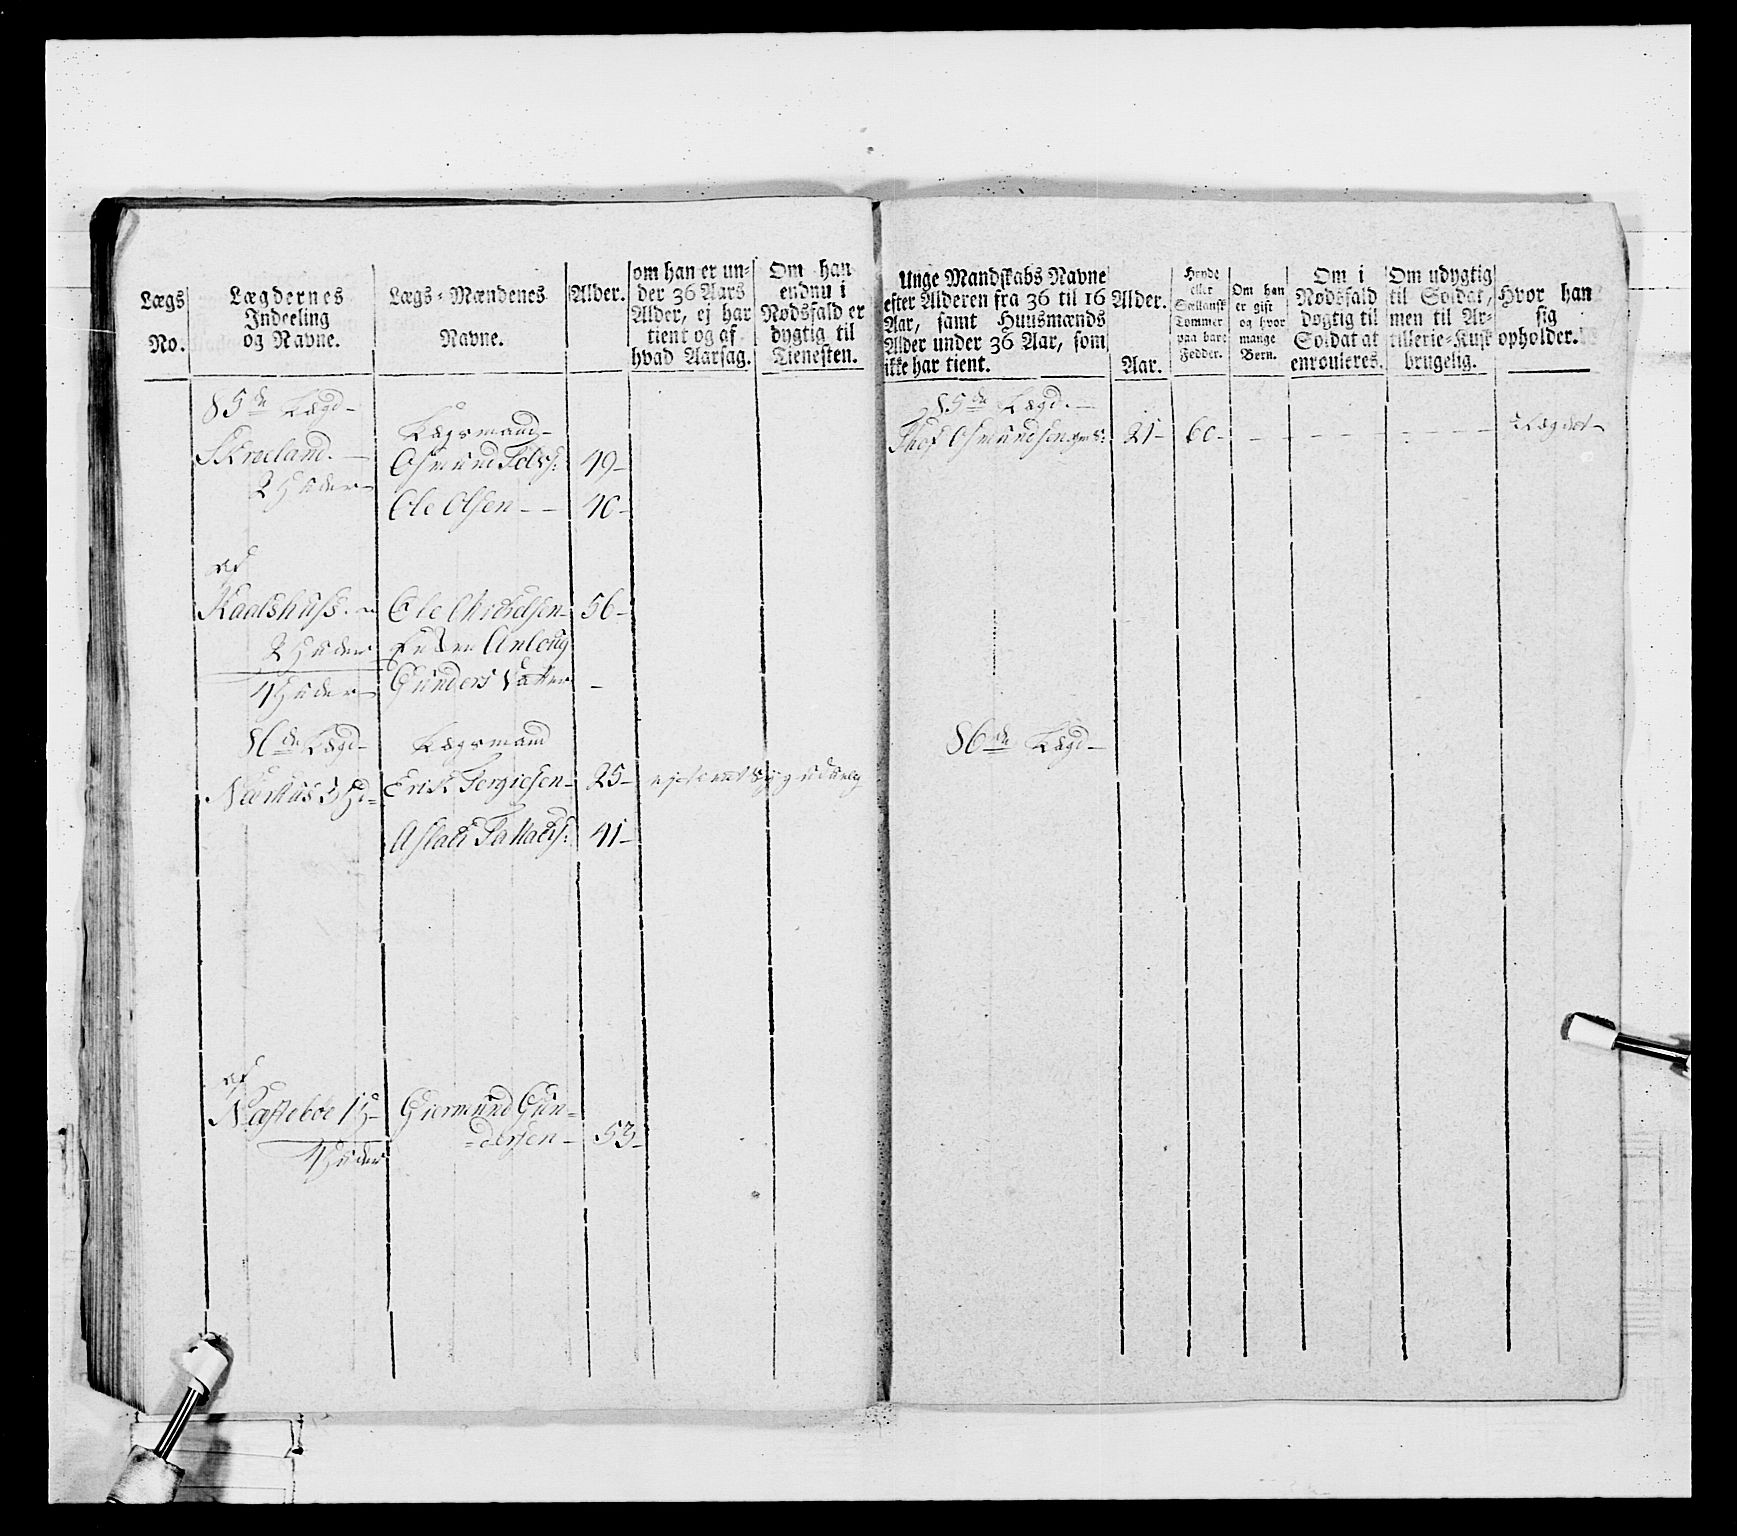 Lægs
No.
Lægdernes
Indeeling
og Navne.
Lægs-Mændenes
Navne.
Alder.
om han er un-
der 36 Aars
Alder, ej har
tient og af
hvad Aarsag.
Om han
endnu i
Nødsfald er
dygtig til
Tienesten.
85de Lægd
Lægsmand
Skreeland
Osmund
49
2 Huder
Ole Olsen
40
af
Kaalshuss
Ole
56
2 Huder
4 Huder
Gunders
86de Lægd
Lægsmand
3 Hd
Erik Tergiesen
25
Aslach
41
af
Næsteboe 1 H
Giermund Gun-
-dersen
53
4 Huder
Unge Mandskabs Navne
efter Alderen fra 36 til 16
Aar, samt Huusmænds
Alder under 36 Aar, som
ikke har tient.
Alder.
Aar.
Høyde
eller
Sællansk
Tommer
paa bare
Fødder.
Om han
er gift
og hvor
mange
Børn.
Om i
Nødsfald
dygtig til
Soldat at
enrouleres.
Om udygtig
til Soldat,
men til Ar-
tillerie-Kusk
brugelig.
Hvor han
sig
opholder.
85de Lægd
Osmundsen
21
60
Lægdet
86de Lægd